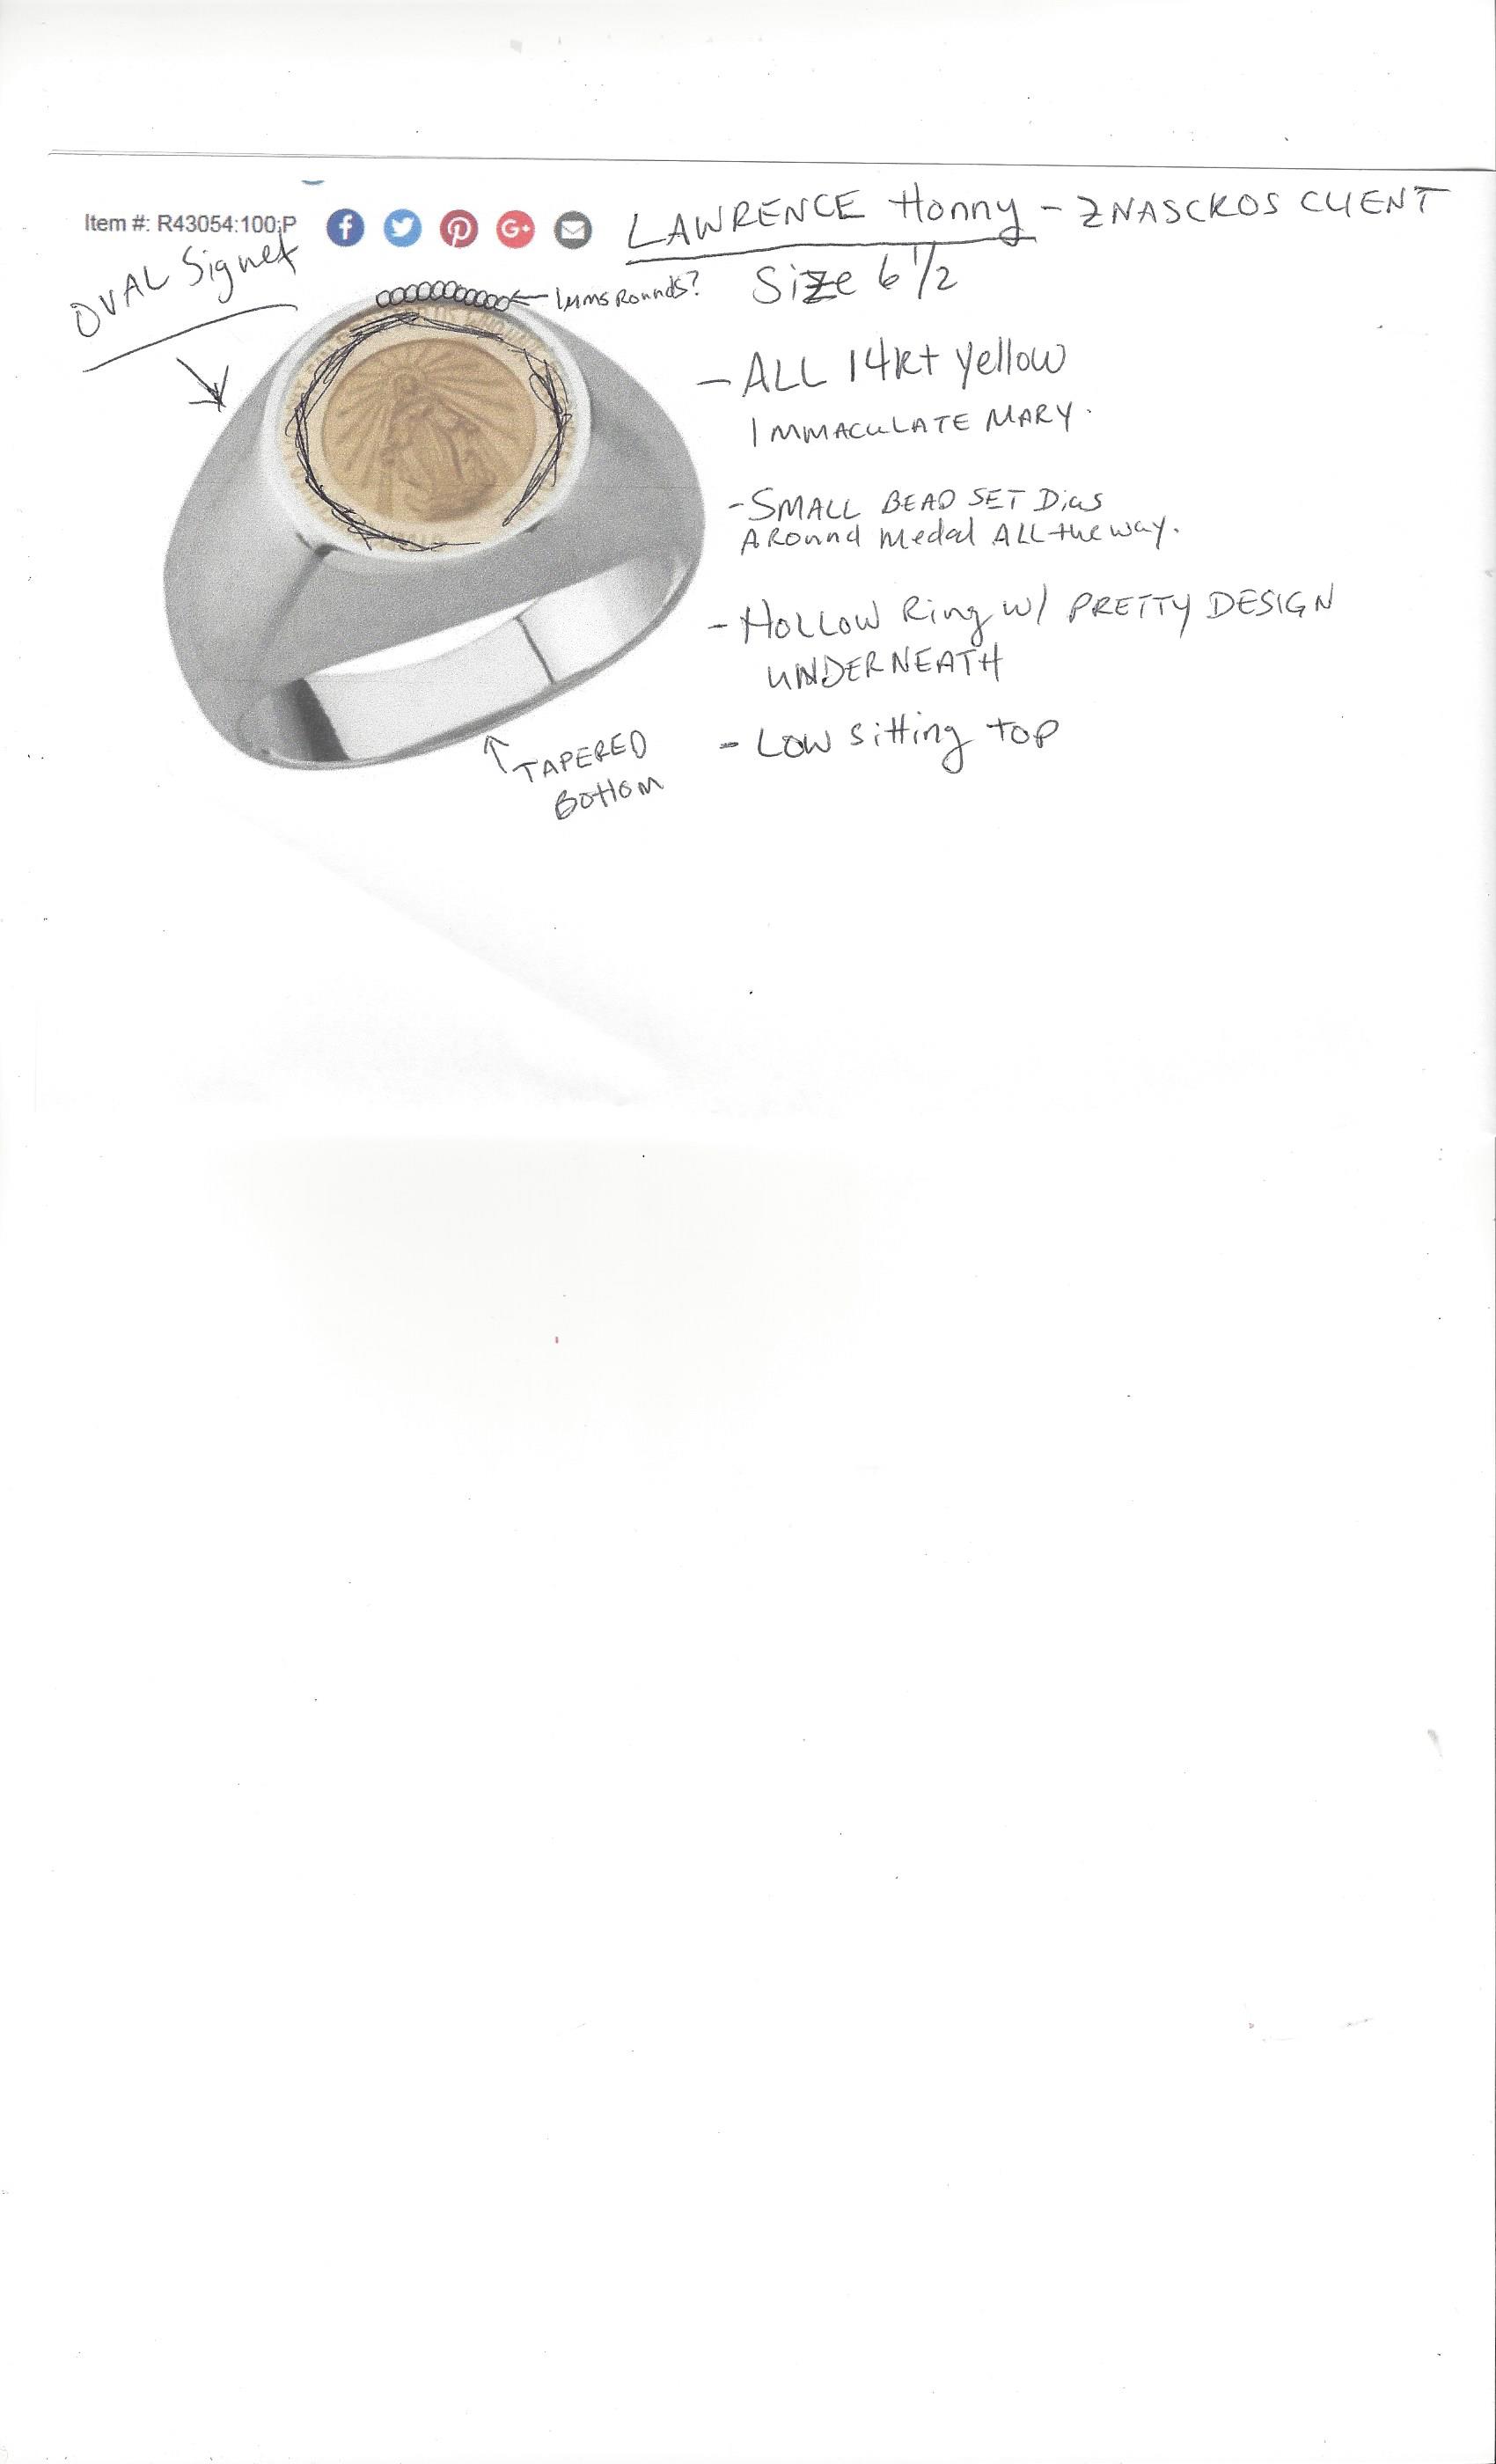 Item #: R43054:100:P
LAWRENCE Honny - ZNASCKOS CLIENT
OVAL Signet
1mms Rounds?
Size 6 1/2
- ALL 14kt yellow
IMMACULATE MARY.
- SMALL BEAD SET Dias
Around medal ALL the way.
- Hollow Ring w/ PRETTY DESIGN
UNDERNEATH
- Low sitting top
TAPERED
Bottom